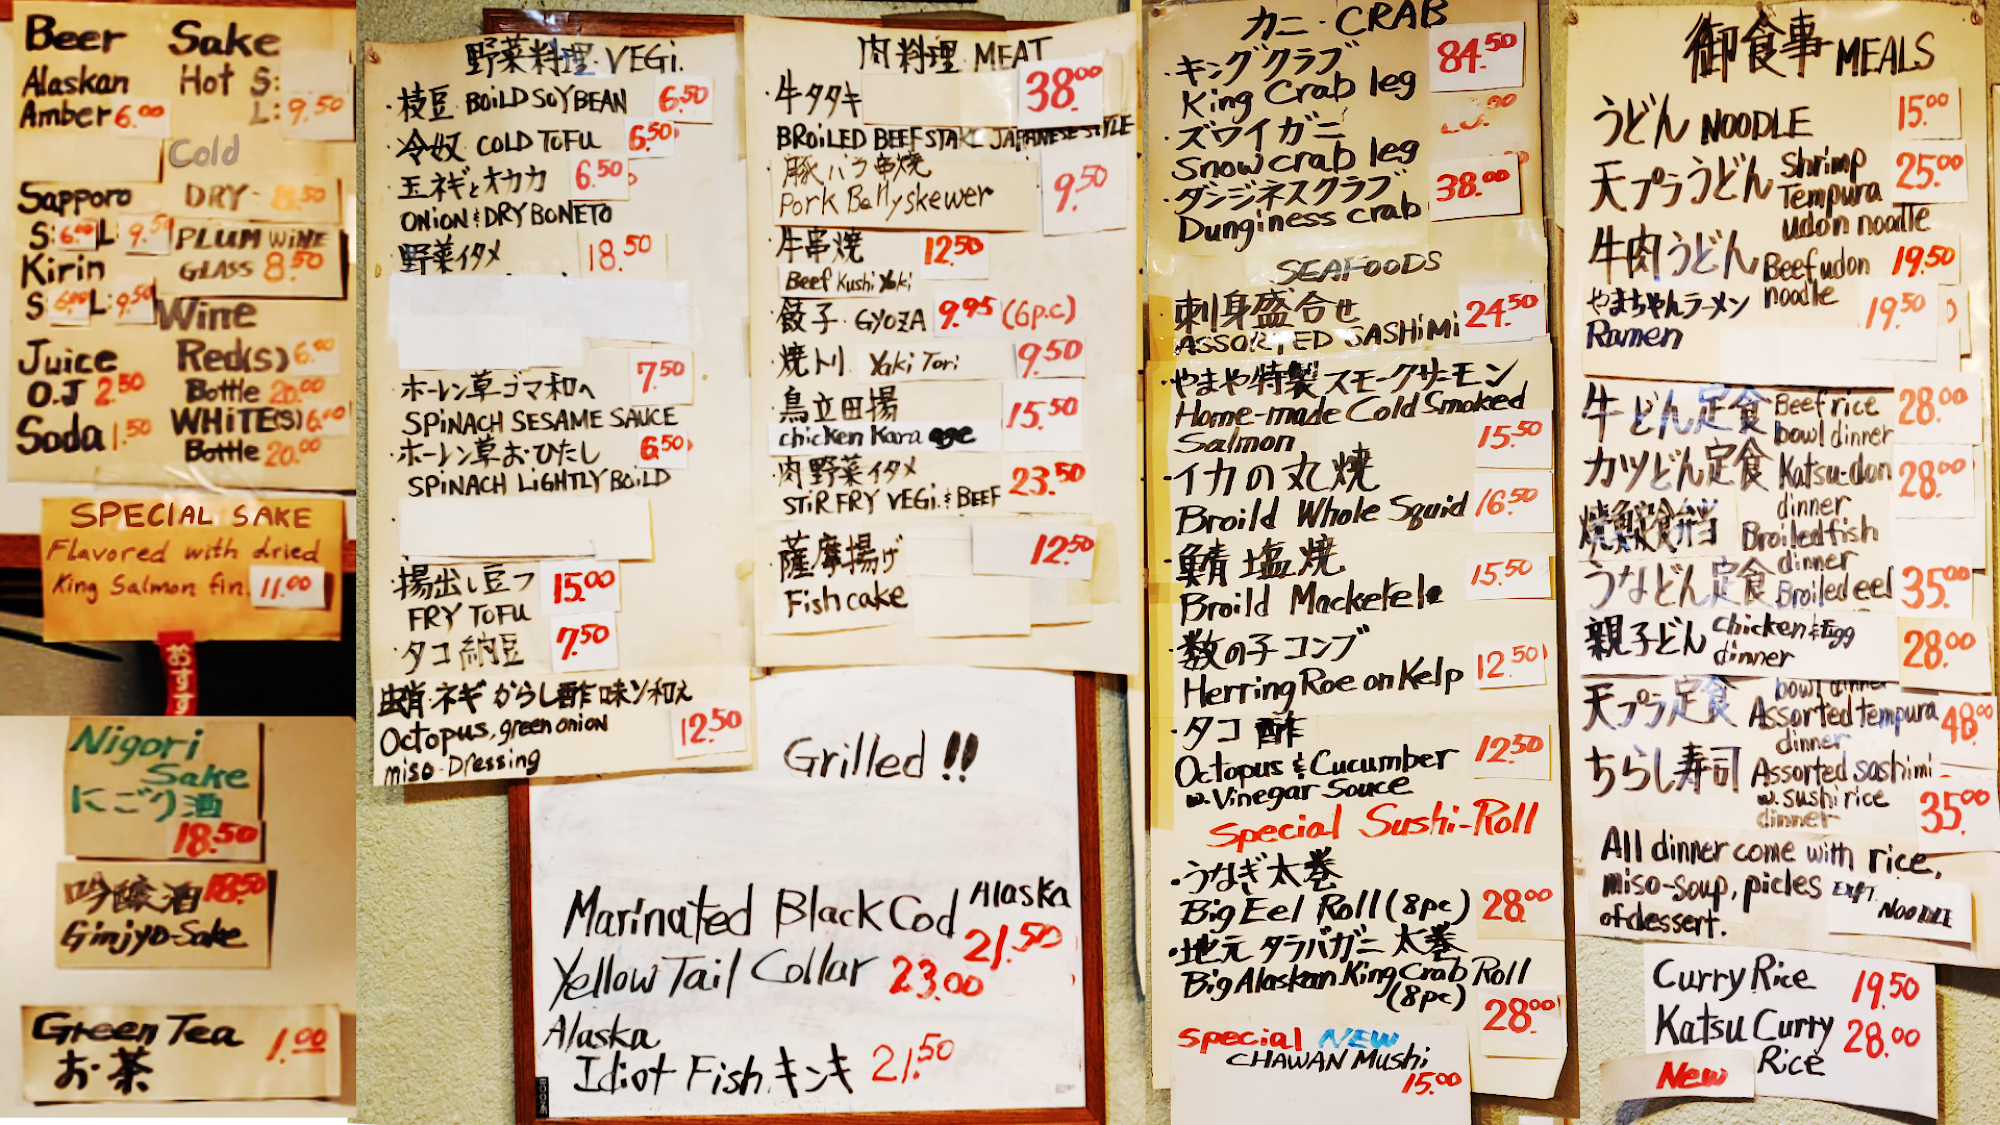 Beer Sake
Alaskan Hot S:
Amber 6.00 L: 9.50
Cold
Sapporo DRY - 8.50
S: 6.00 L: 9.50 PLUM WINE
Kirin GLASS 8.50
S: 6.00 L: 9.50 Wine
Juice Red(s) 6.00
O.J 2.50 Bottle 20.00
Soda 1.50 WHITE(S) 6.00
Bottle 20.00
SPECIAL SAKE
Flavored with dried
King Salmon fin. 11.00
おすす
Nigori
Sake
にごり酒
18.50
吟醸酒 18.50
Ginjyo-Sake
Green Tea
お茶 1.00
野菜料理・VEGi.
・枝豆 BOiLD SOYBEAN 6.50
・冷奴 COLD TOFU 6.50
・玉ネギとオカカ 6.50
ONiON & DRY BONETO
・野菜イタメ 18.50
・ホーレン草ゴマ和へ 7.50
SPiNACH SESAME SAUCE
・ホーレン草おひたし 6.50
SPiNACH LiGHTLY BOiLD
・揚出し豆フ 15.00
FRY TOFU
・タコ納豆 7.50
蛸・ネギからし酢味ソ和え
Octopus, green onion 12.50
miso-Dressing
肉料理 MEAT
・牛タタキ 38.00
BROiLED BEEF STAKE JAPANESE STYLE
・豚バラ串焼
Pork Belly skewer 9.50
・牛串焼 12.50
Beef Kushi Yaki
・餃子・GYOZA 9.95 (6p.c)
・焼トリ Yaki Tori 9.50
・鳥立田揚 15.50
chicken Kara age
・肉野菜イタメ
STiR FRY VEGi. & BEEF 23.50
・薩摩揚げ 12.50
Fish cake
Grilled !!
Marinated Black Cod Alaska
21.50
Yellow Tail Collar 23.00
Alaska
Idiot Fish キンキ 21.50
カニ・CRAB
・キングクラブ 84.50
King Crab leg
・ズワイガニ
Snow crab leg
・ダンジネスクラブ 38.00
Dunginess crab
SEAFOODS
・刺身盛合せ 24.50
ASSORTED SASHiMi
・やまや特製スモークサーモン
Home-made Cold Smoked
Salmon 15.50
・イカの丸焼
Broild Whole Squid 16.50
・鯖塩焼
Broild Mackerele 15.50
・数の子コンブ
Herring Roe on Kelp 12.50
・タコ酢
Octopus & Cucumber 12.50
w. Vinegar Souce
Special Sushi-Roll
・うなぎ太巻
Big Eel Roll (8pc) 28.00
・地元タラバガニ太巻
Big Alaskan King Crab Roll
(8pc) 28.00
Special NEW
CHAWAN Mushi
15.00
御食事 MEALS
うどん NOODLE 15.00
天プラうどん Shrimp Tempura udon noodle 25.00
牛肉うどん Beef udon noodle 19.50
やまちゃんラーメン 19.50
Ramen
牛どん定食 Beef rice bowl dinner 28.00
カツどん定食 Katsu-don dinner 28.00
焼魚食弁当 Broiled fish dinner
うなどん定食 Broiled eel 35.00
親子どん chicken & Egg dinner 28.00
bowl dinner
天プラ定食 Assorted tempura dinner 48.00
ちらし寿司 Assorted sashimi w. sushi rice dinner 35.00
All dinner come with rice,
miso-soup, picles EXPT. NOODLE
of dessert.
Curry Rice 19.50
Katsu Curry Rice 28.00
New